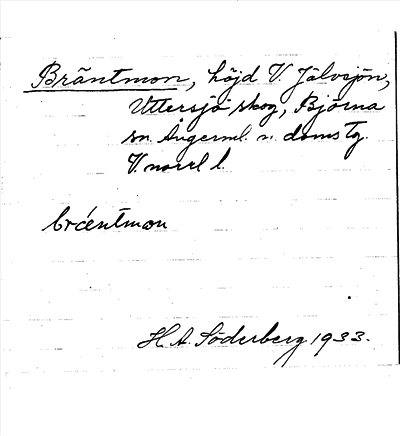 Bräntmon, höjd V. Jälvsjön,
Uttersjö skog, Björna
sn. Ångerml. n. doms Tg.
V. norrl l.
bræ̀ntmon
H. A. Söderberg 1933.